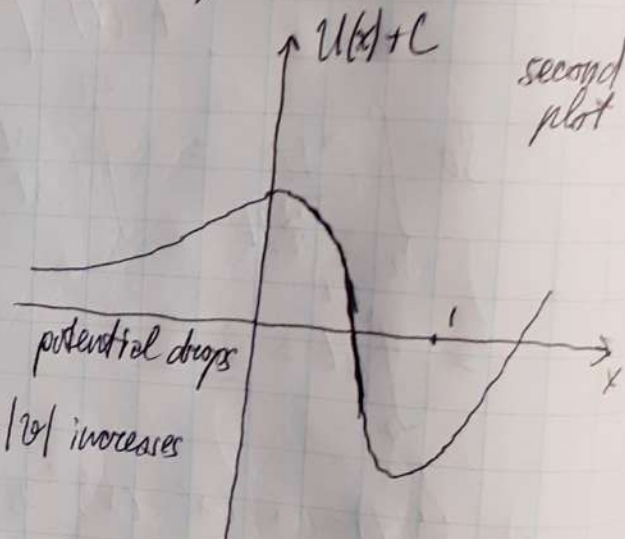 U(x)+C
second
plot
1
x
potential drops
|v| increases